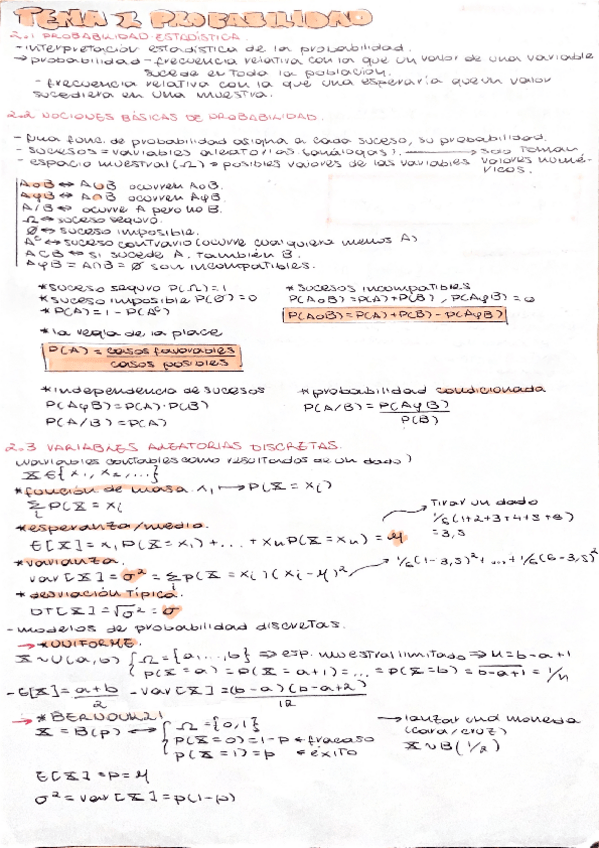 TEMA 2 PROBABILIDAD
2.1 PROBABILIDAD ESTADÍSTICA.
- interpretación estadística de la probabilidad.
→ probabilidad - frecuencia relativa con la que un valor de una variable
suceda en toda la población.
- frecuencia relativa con la que una esperaría que un valor
sucediera en una muestra.
2.2 NOCIONES BÁSICAS DE PROBABILIDAD.
- Una func. de probabilidad asigna a cada suceso, su probabilidad.
- sucesos = variables aleatorias (análogas). → solo toman
- espacio muestral (Ω) = posibles valores de las variables valores numé-
ricos.
A o B ⇔ A∪B ocurren A o B.
A y B ⇔ A∩B ocurren A y B
A/B ⇔ ocurre A pero no B.
Ω ⇔ suceso seguro.
∅ ⇔ suceso imposible.
Aᶜ ⇔ suceso contrario (ocurre cualquiera menos A)
A⊂B ⇔ si sucede A. también B.
A y B = A∩B = ∅ son incompatibles.
* suceso seguro P(Ω)=1
* sucesos incompatibles
* suceso imposible P(∅)=0
P(A o B)=P(A)+P(B), P(A y B)=0
* P(A)=1-P(Aᶜ)
P(A o B)=P(A)+P(B)-P(A y B)
* la regla de la place
P(A) = casos favorables
casos posibles
* independencia de sucesos
* probabilidad condicionada
P(A y B)=P(A)·P(B)
P(A/B)=P(A y B)
P(B)
P(A/B)=P(A)
2.3 VARIABLES ALEATORIAS DISCRETAS.
(variables contables como resultados de un dado)
X∈{x₁, x₂, ...}
* función de masa. x₁ → P(X = xᵢ)
Σ P(X = xᵢ
ᵢ
* esperanza/media.
E[X] = x₁P(X = x₁) + ... + xₙP(X = xₙ) = μ
→ Tirar un dado
1/6(1+2+3+4+5+6)
=3,5
* varianza.
var[X] = σ² = Σ P(X = xᵢ)(xᵢ-μ)²
ᵢ
→ 1/6(1-3,5)² + ... + 1/6(6-3,5)²
* desviación típica.
DT[X] = √σ² = σ
- modelos de probabilidad discretas.
→ * UNIFORME.
X∼U(a,b) { Ω = {a,...,b} ⇒ esp. muestral limitado ⇒ n=b-a+1
P(X=a) = P(X = a+1) = ... = P(X=b) = 1/(b-a+1) = 1/n
- E[X] = (a+b)/2 - Var[X] = (b-a)(b-a+2)/12
→ * BERNOULLI
X = B(p) ⇔ { Ω = {0,1}
P(X=0)=1-p ← fracaso
P(X=1)=p ← éxito
→ lanzar una moneda
(cara/cruz)
X∼B(1/2)
E[X]=p=μ
σ² = var[X]=p(1-p)